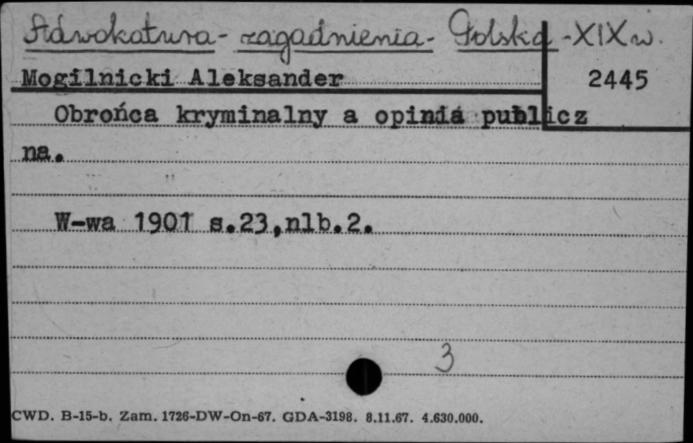 Adwokatura - zagadnienia - Polska - XIX w.
Mogilnicki Aleksander
2445
Obrońca kryminalny a opinia publicz
na.
W-wa 1901 s.23,nlb.2.
3
CWD. B-15-b. Zam. 1726-DW-On-67. GDA-3198. 8.11.67. 4.630.000.